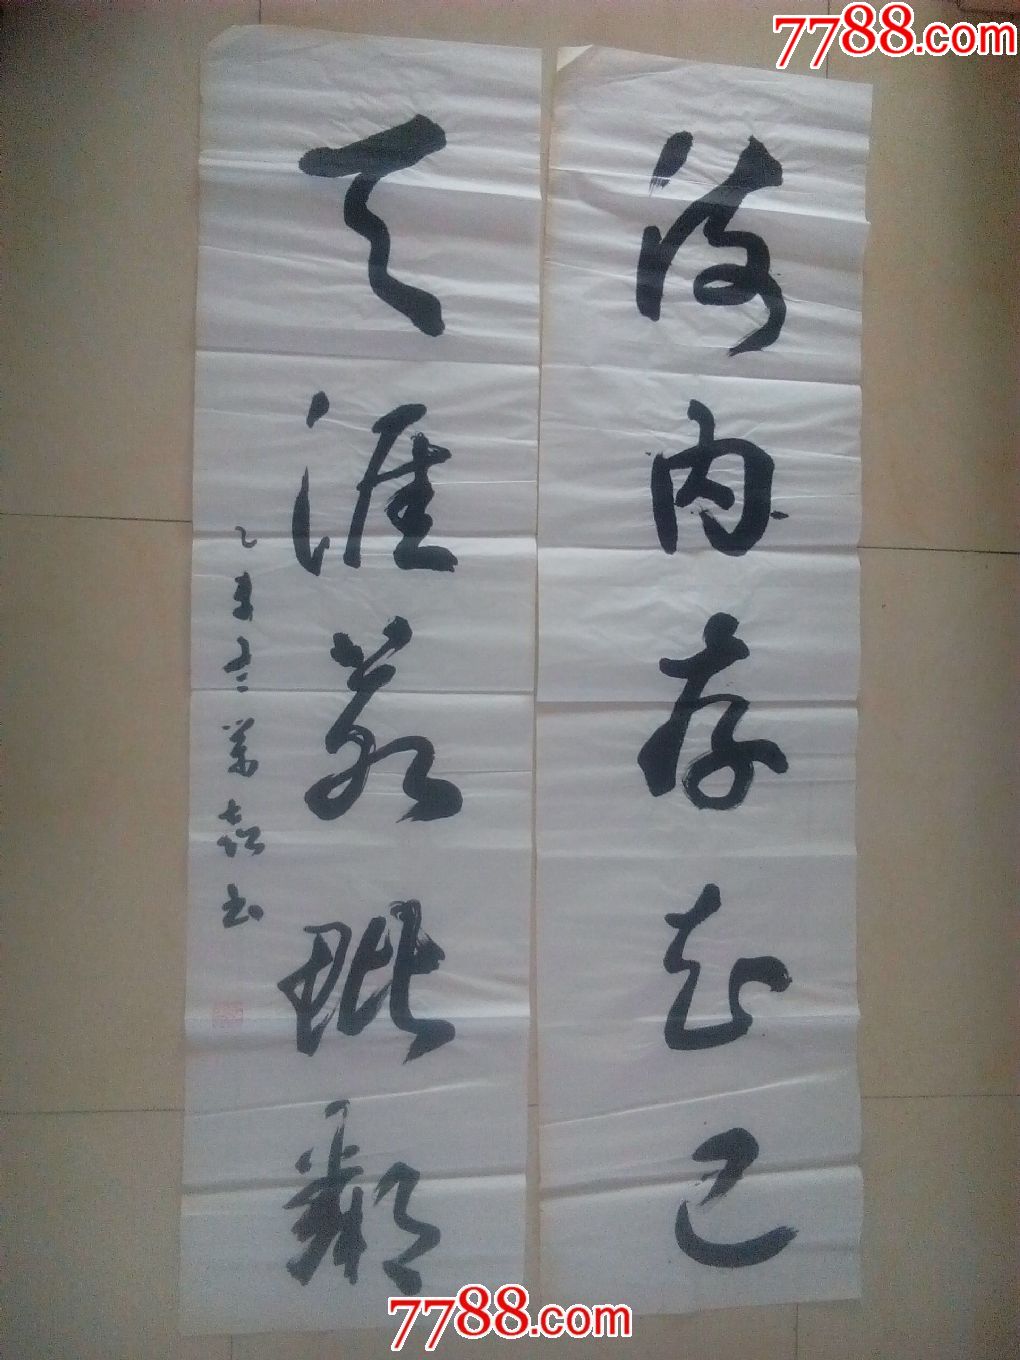 7788.com
海内存知己
天涯若毗邻
乙未
书
7788.com